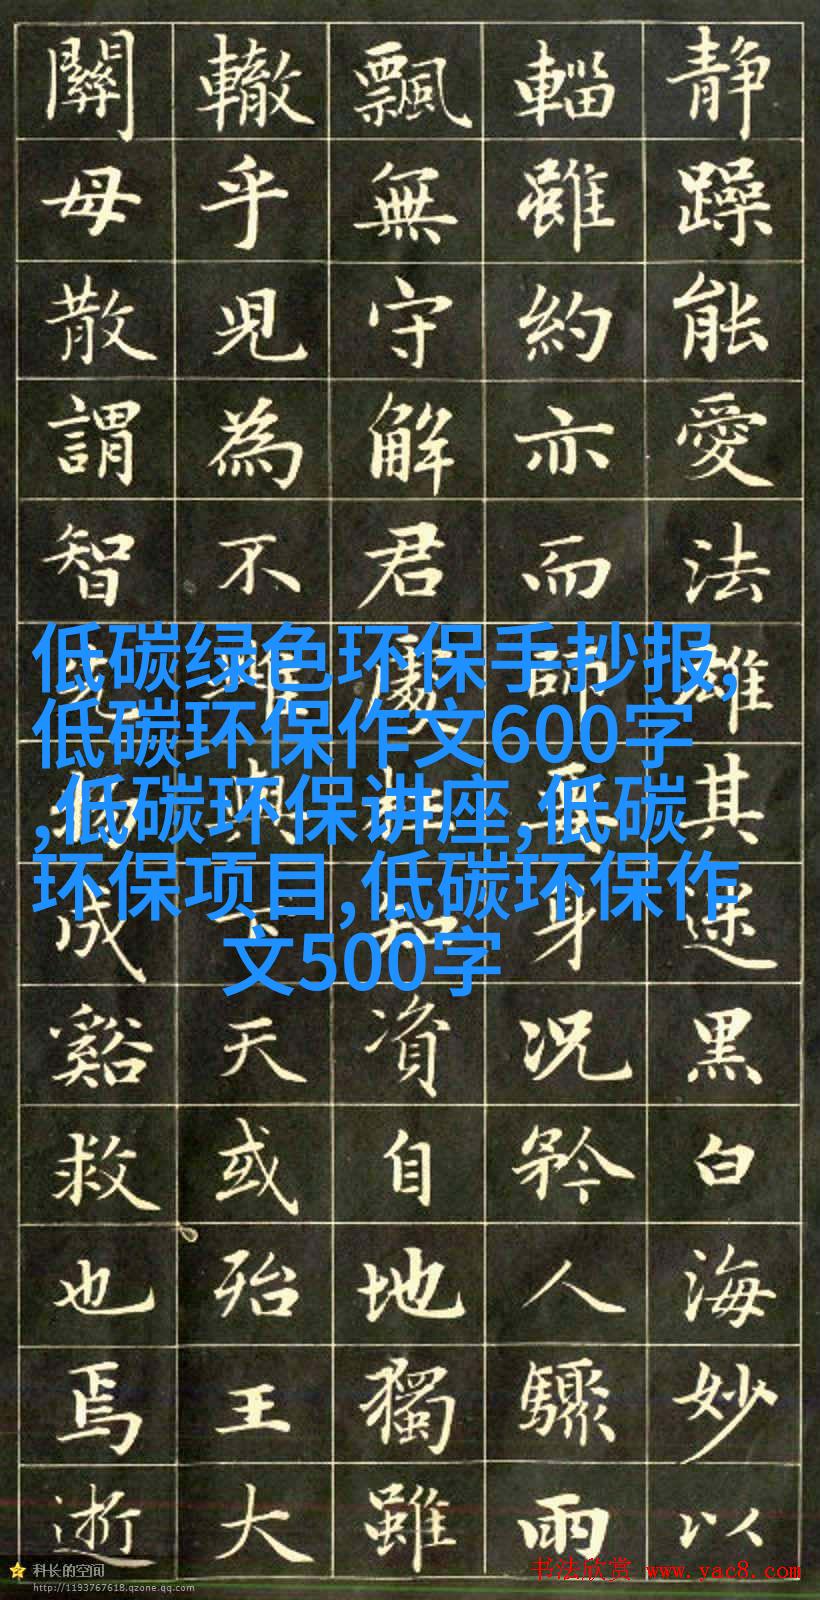 静躁能愛法雄其迷黑白海妙以
輜雖約亦而師身況矜人驟雨
飄無守解君處知資自地獨雖
轍乎兒為不天或殆王大
關母散謂智成谿救也焉逝
低碳绿色环保手抄报,
低碳环保作文600字
,低碳环保讲座,低碳
环保项目,低碳环保作
文500字
科长的空间
http://1193767618.qzone.qq.com
书法欣赏 www.yac8.com